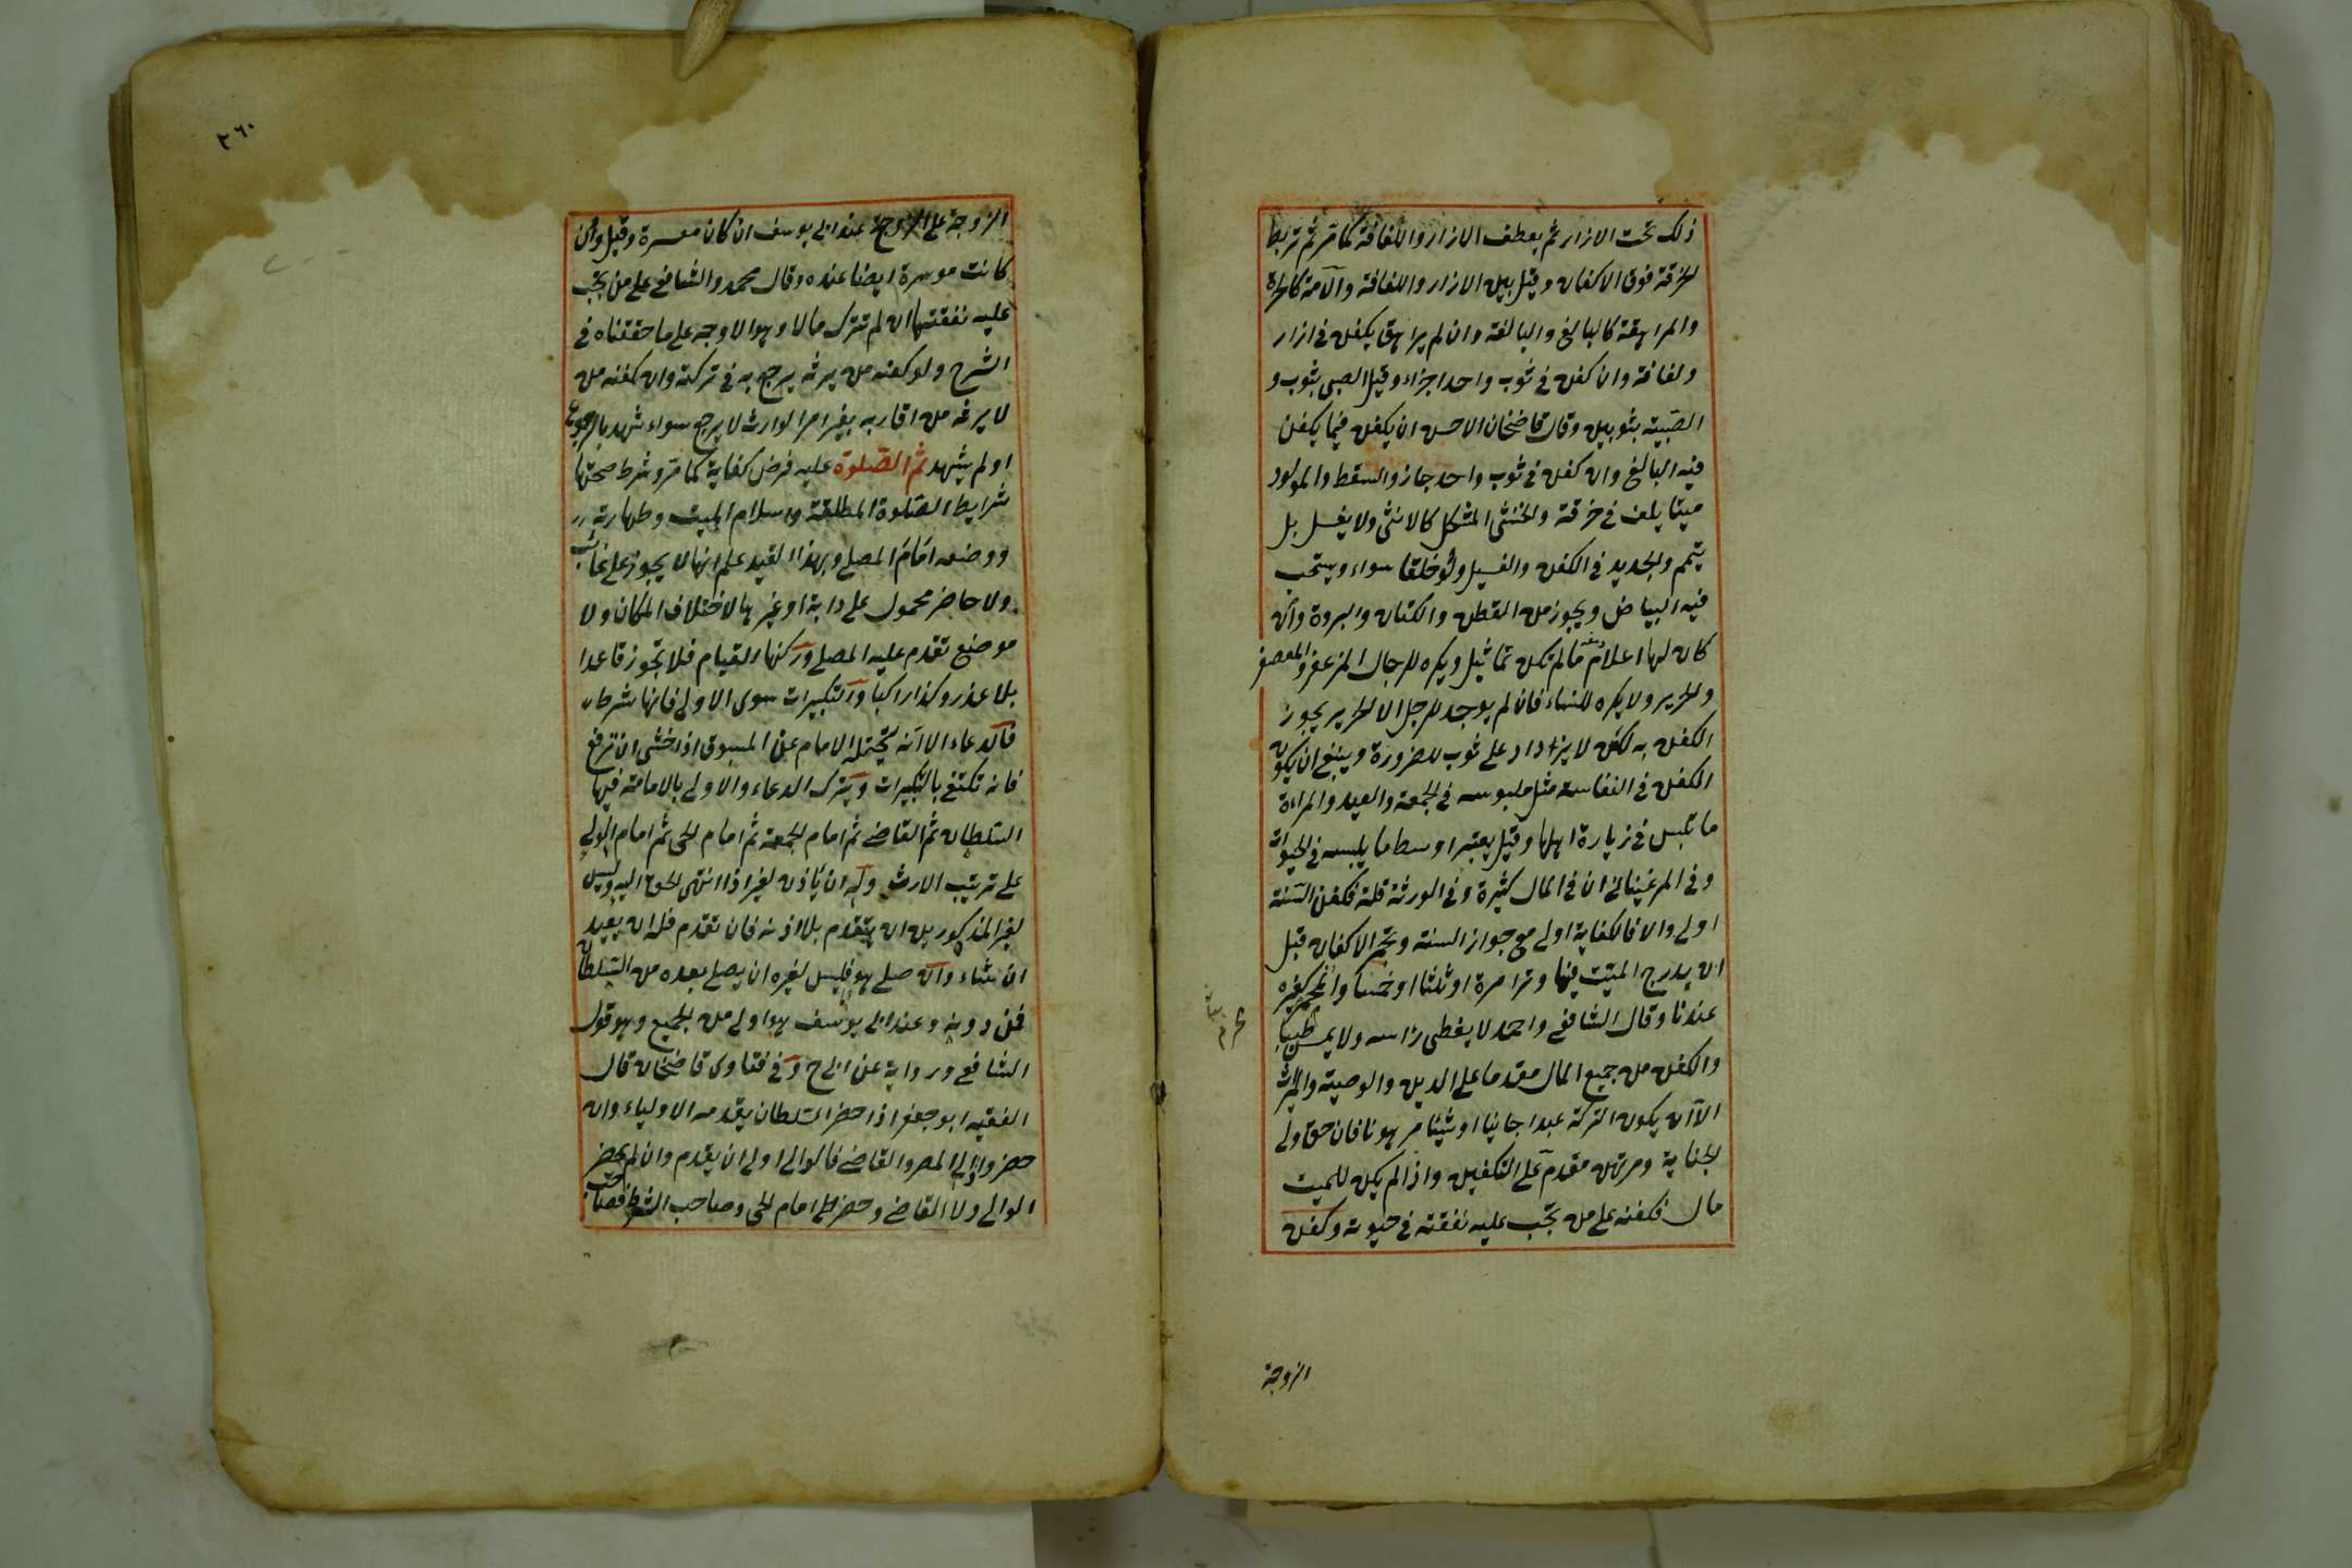 ذلك تحت الازار ثم يعطف الازار واللفافة كما مر ثم تربط
الخرقة فوق الاكفان وقيل بين الازار واللفافة والامة كالحرة
والمراهقة كالبالغ والبالغة وان لم يراهق يكفن في ازار
ولفافة وان كفن في ثوب واحد اجزاء وقيل الصبي بثوب و
الصبية بثوبين وقال قاضخان الاحسن ان يكفن فيما يكفن
فيه البالغ وان كفن في ثوب واحد جاز والسقط والمولود
ميتا يلف في خرقة والخنثى المشكل كالانثى ولا يغسل بل
يتمم والجديد في الكفن والغسيل ولو خلقا سواء ويستحب
فيه البياض ويجوز من القطن والكتان والبرود وان
كان لها اعلام مالم تكن تماثيل ويكره للرجال المزعفر والمعصفر
والحرير ولا يكره للنساء فان لم يوجد للرجل الا الحرير يجوز
الكفن به لكن لا يزاد على ثوب للضرورة وينبغي ان يكون
الكفن في النفاسة مثل ملبوسه في الجمعة والعيد والمراءة
ما تلبس في زيارة اهلها وقيل يعتبر اوسط ما يلبسه في الحيوة
وفي المرغيناني ان في المال كثرة وفي الورثة قلة فكفن السنة
اولى والا فالكفاية اولى مع جواز السنة وتجمر الاكفان قبل
ان يدرج الميت فيها وترا مرة او ثلثا او خمسا والمحرم كغيره
عندنا وقال الشافعي واحمد لا يغطى رأسه ولا يمس طيبا
والكفن من جميع المال مقدما على الدين والوصية والارث
الا ان يكون التركة عبدا جانيا او شيئا مرهونا فان حق ولي
الجناية ومرتهن مقدم على التكفين واذا لم يكن للميت
مال فكفنه على من تجب عليه نفقته في حيوته وكفن
الزوجة
٢٦٠
الزوجة على الزوج عند ابي يوسف ان كان معسرة وقيل وان
كانت موسرة ايضا عنده وقال محمد والشافعي على من تجب
عليه نفقتها ان لم تترك مالا وهو الاوجه على ما حققناه في
الشرح ولو كفنه من يرثه يرجع به في تركته وان كفنه من
لا يرثه من اقاربه بغير امر الوارث لا يرجع سواء شهد بالرجوع
او لم يشهد ثم الصلوة عليه فرض كفاية كما مر وشرط صحتها
شرايط الصلوة المطلقة واسلام الميت وطهارته
ووضعه امام المصلي وبهذا القيد علم انها لا يجوز على غائب
ولا حاضر محمول على دابة او غيرها لاختلاف المكان ولا
موضع تقدم عليه المصلي وركنها القيام فلا تجوز قاعدا
بلا عذر وكذا راكبا والتكبيرات سوى الاولى فانها شرط
فالدعاء الا انه يتحمله الامام عن المسبوق اذا خشي ان ترفع
فانه تكتفي بالتكبيرات ويترك الدعاء والاولى بالامامة فيها
السلطان ثم القاضي ثم امام الجمعة ثم امام الحي ثم امام الولي
على ترتيب الارث وله ان يأذن لغير اذا انتهى الحق اليه وليس
لغير المذكورين ان يتقدم بلا اذنه فان تقدم فله ان يعيد
ان شاء وان صلى هو فليس لغيره ان يصلي بعده من السلطان
فمن دونه وعند ابي يوسف هو اولى من الجميع وهو قول
الشافعي ورواية عن ابي ح وفي فتاوى قاضخان قال
الفقيه ابو جعفر اذا حضر السلطان يقدمه الاولياء وان
حضر والي المصر والقاضي فالوالي اولى ان يقدم وان لم يحضر
الوالي ولا القاضي وحضر امام الحي وصاحب الشرط فصاحب